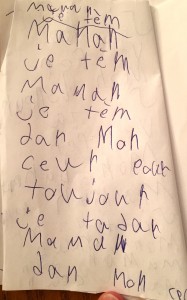 maman
je tèm
Maman
je tèm
Maman
je tèm
dan Mon
ceur pour
toujour
je tadar
Maman
dan Mon